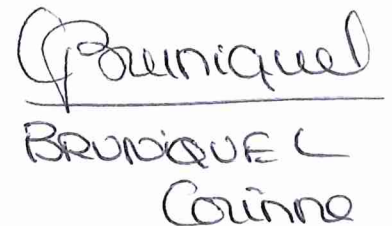 CBruniquel
BRUNiQUEL
Corinne